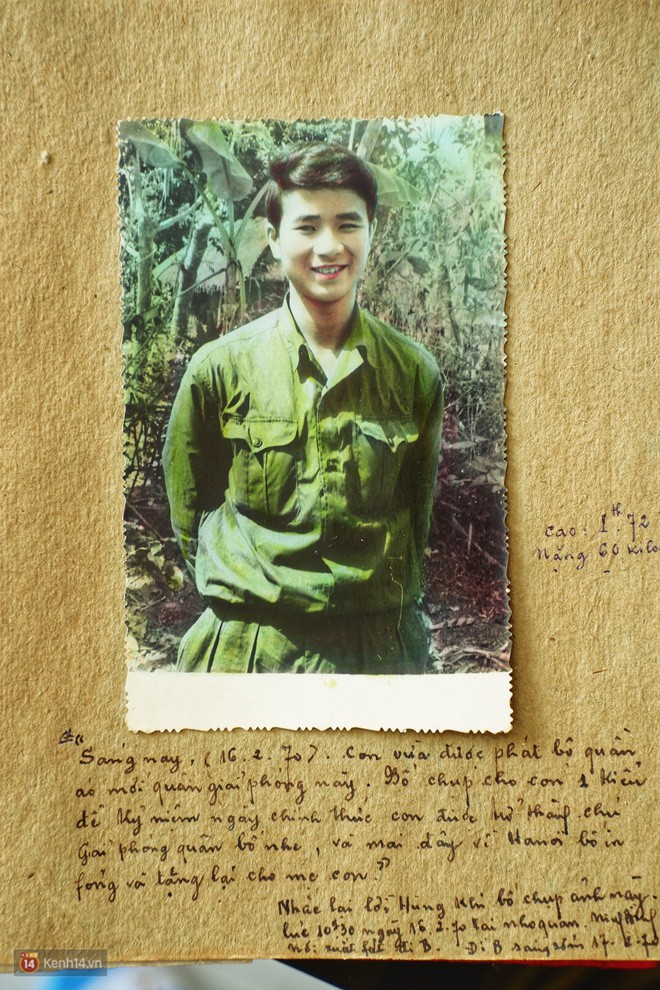 cao: 1th72
nặng 60 kilo
"Sáng nay, (16.2.70). Con vừa được phát bộ quần
áo mới quân giải phóng này. Bố chụp cho con 1 kiểu
để kỷ niệm ngày chính thức con được trở thành chú
Giải phóng quân bố nhé, và mai đây về Hanoi bố in
fóng và tặng lại cho mẹ con"
Nhắc lại lời Hùng khi bố chụp ảnh này.
lúc 10h30 ngày 16.2.70 tại nho quan.
Nơi xuất fát đi B. Đi B sáng sớm 17.2.70
14 Kenh14.vn